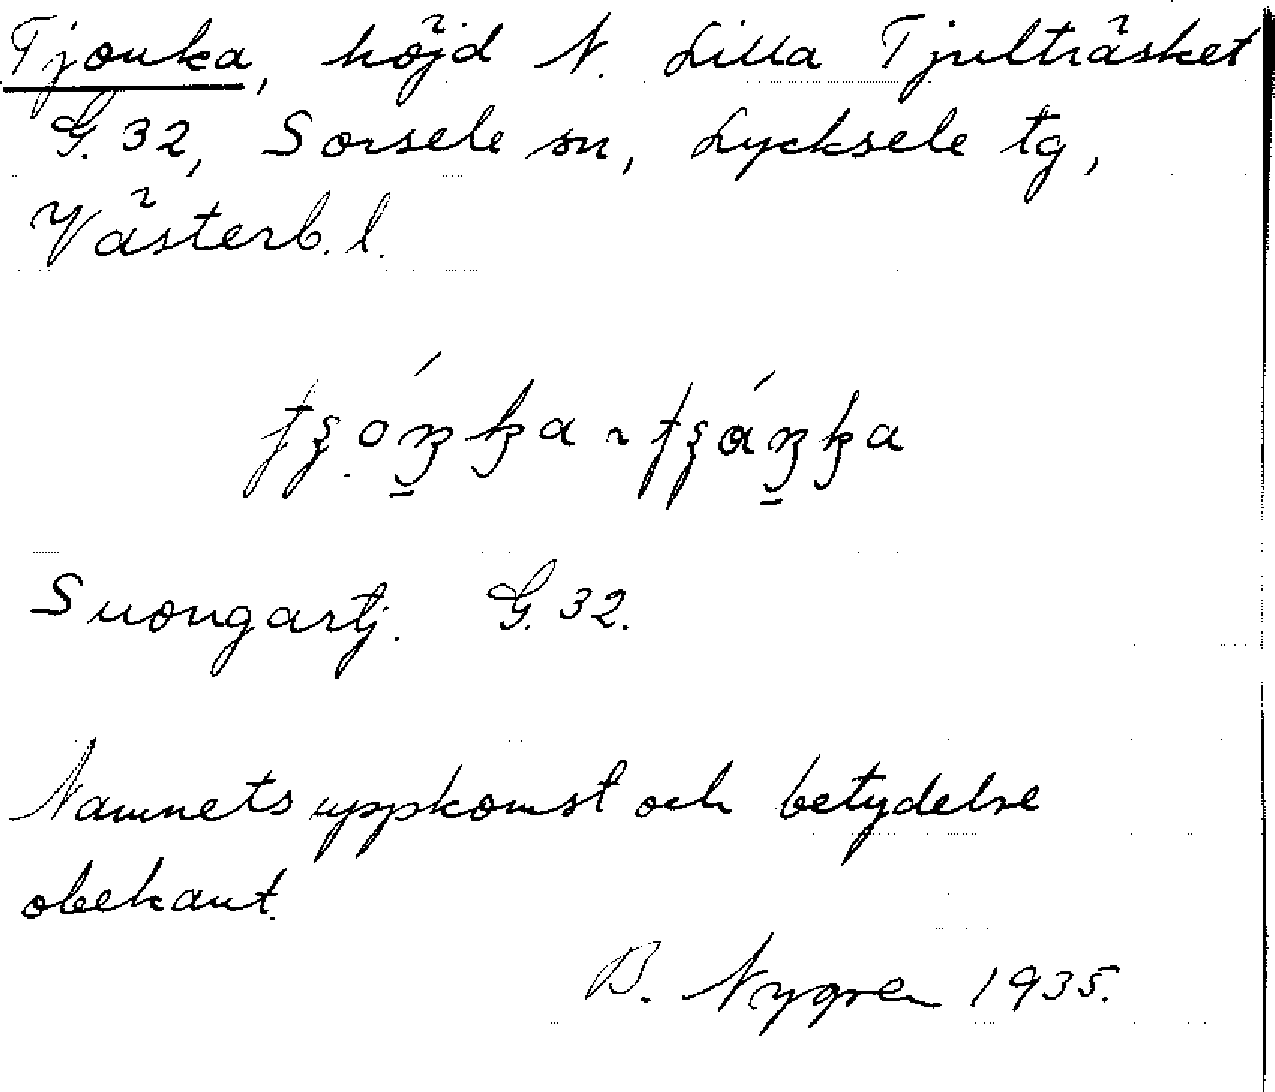 Tjouka, höjd N. Lilla Tjulträsket
G. 32, Sorsele sn, Lycksele tg,
Västerb. l.
Suongartj. G. 32.
Namnets uppkomst och betydelse
obekant.
B. Nygren 1935.